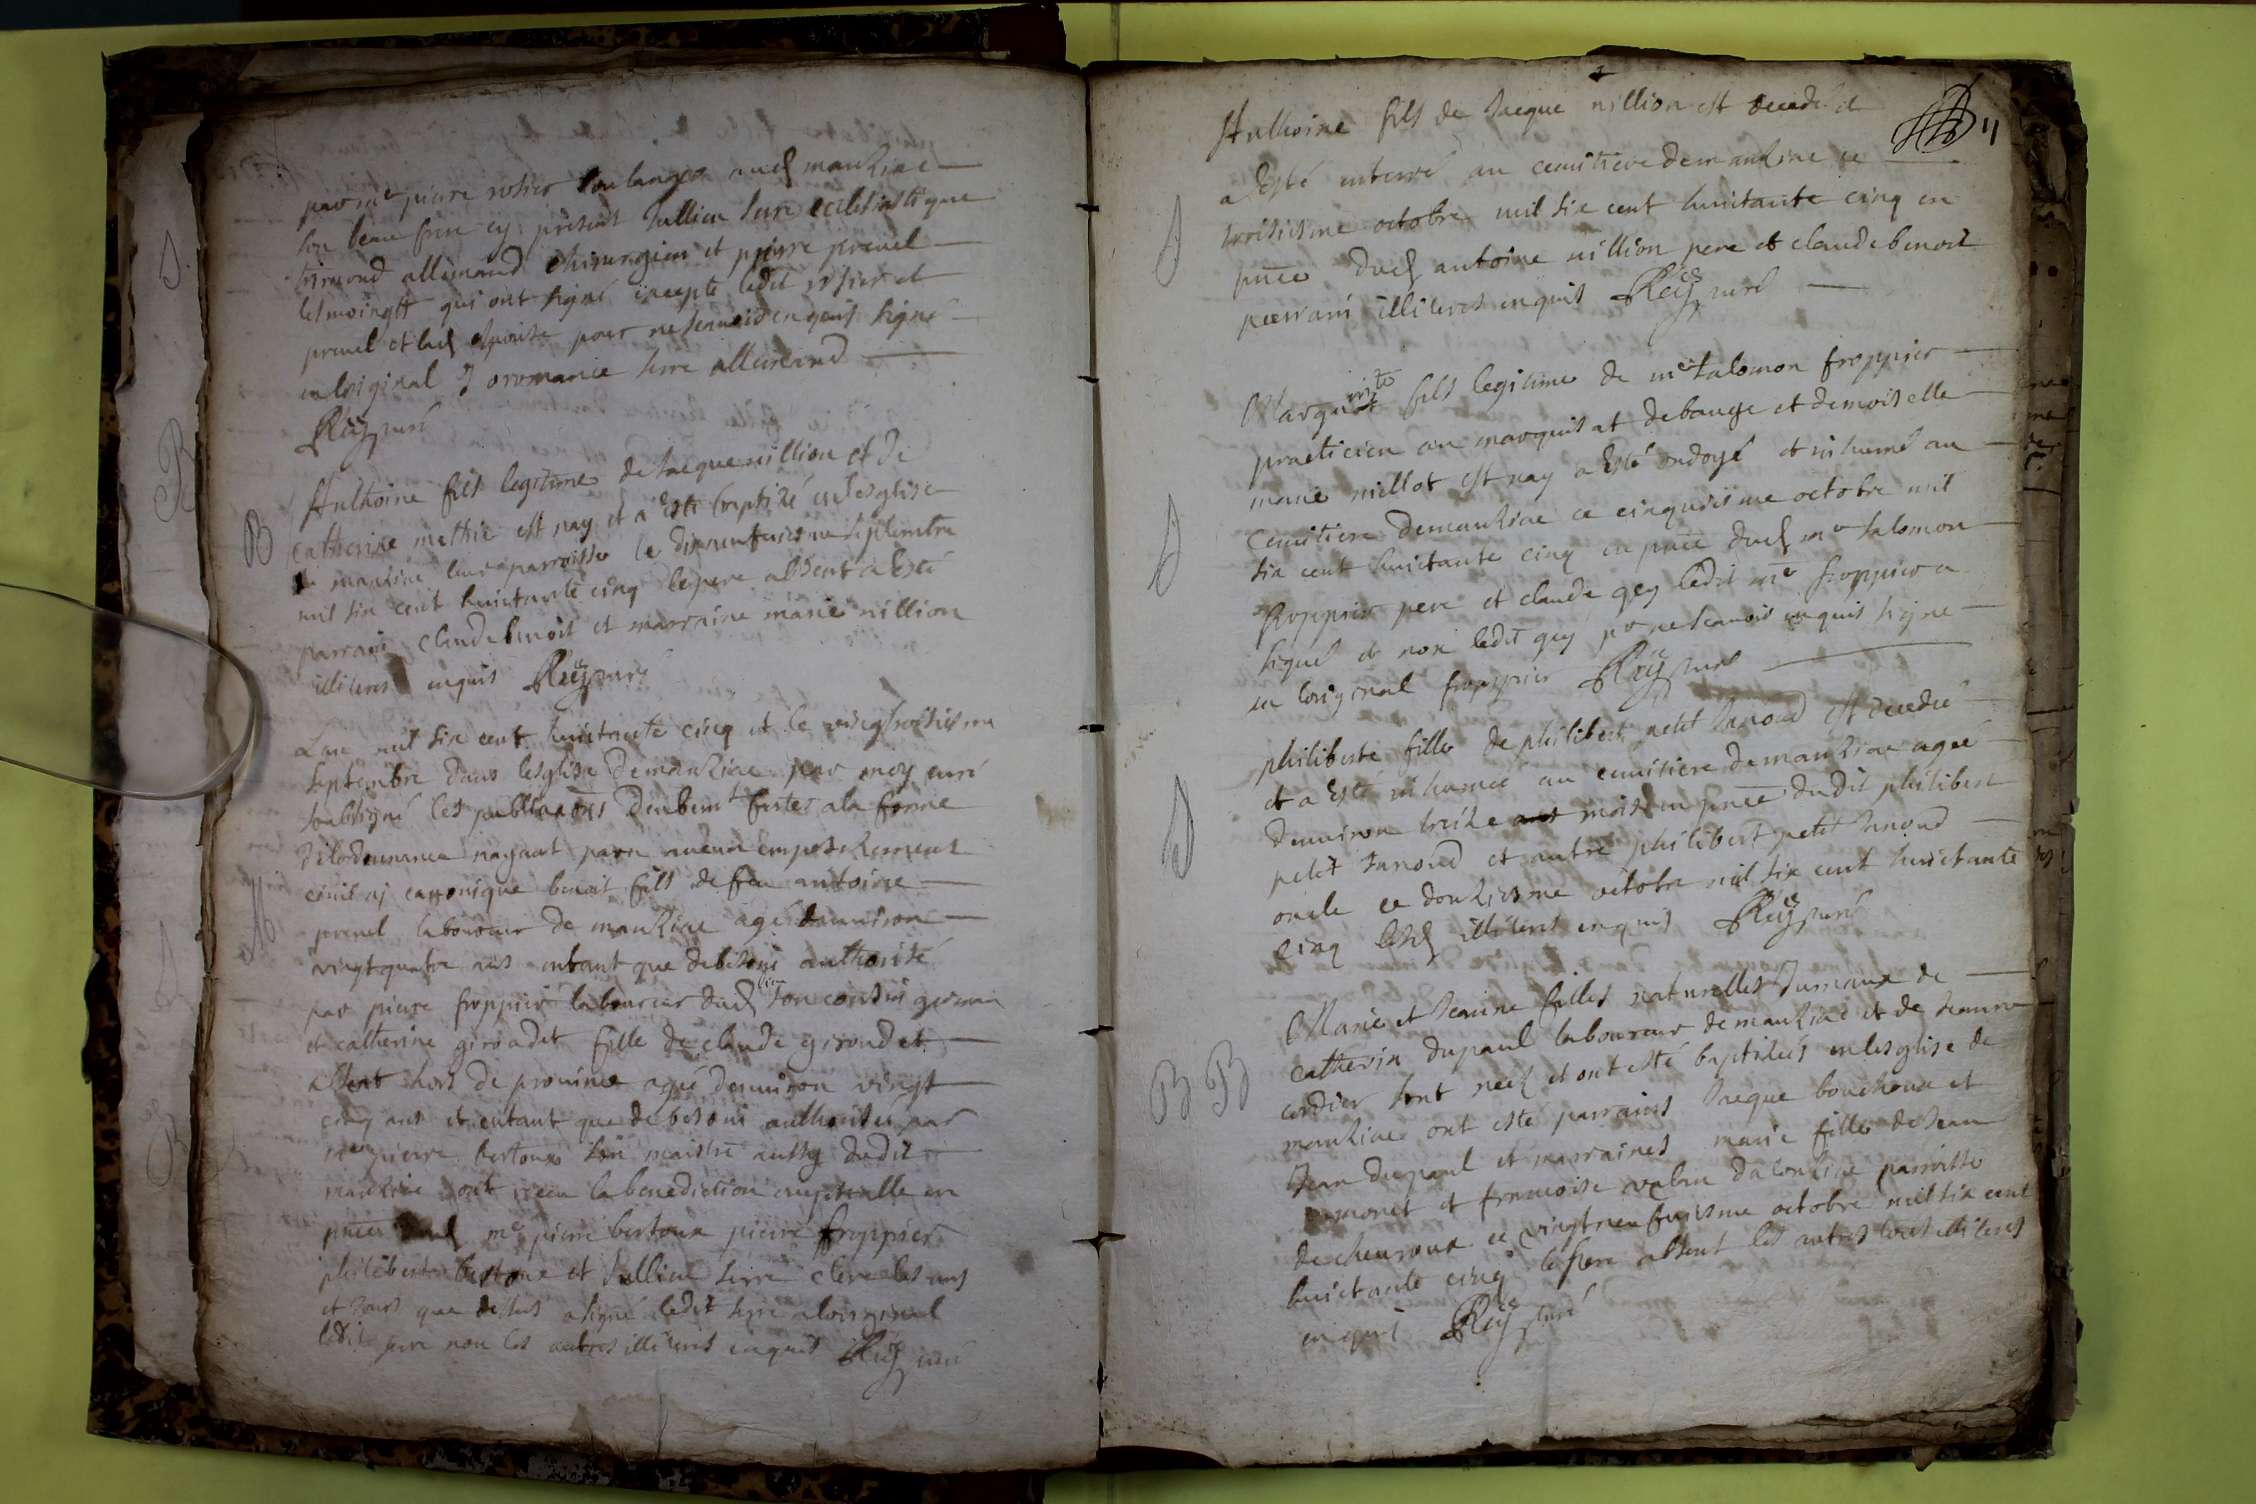 par me pierre rosier boulanger aud manziac
son beau frere cy present Jullien serre eclesiastique
allemand chirurgien et pierre preuel
tesmoingtz qui ont signé excepté ledit rosier et
preuel et lad espouse pour ne scauoir enquis signé
en loriginal J oromancie serre allemand
Reÿ curé
B
Anthoine fils legitime de Jacque nillion et de
catherine mathie est nay et a esté baptizé en lesglise
de manziac leur parroisse le septembre
mil six cent huictante cinq le pere absent a esté
parrain claude benoit et marraine marie nillion
illiteres enquis Reÿ curé
M
Lan mil six cent huictante cinq et le vingtroisiesme
septembre dans lesglise de manziac par moy curé
soubsigné les publications deubemt faites a la forme
de lordonnance nayant paru aucun empeschement
ciuil nj cannonique benoit fils de feu antoine
preuel laboureur de manziac agé denuiron
vingt quatre ans entant que de besoin authorisé
par pierre froppier laboureur dud lieu son cousin germain
et catherine giroudet fille de claude giroudet
absent hors de prouince agée denuiron vingt
cinq ans et entant que de besoin authorisée par
me pierre bertoux son maistre aussy dudit
manziac ont receu la benediction nuptialle en
pnce dud me pierre bertoux pierre froppier
philibert bertoux et Jullien serre clerc les ans
et jours que dessus a signé ledit serre a loriginal
ledit serre non les autres illiteres enquis Reÿ curé
11
Anthoine fils de Jacque nillion est decedé et
a esté enterré au cemitiere de manziac ce
troisiesme octobre mil six cent huictante cinq en
pnce dud antoine nillion pere et claude benoit
parrain illiteres enquis Reÿ curé
D
Marguerite fils legitime de me salomon froppier
practicien au marquisat de bauge et demoiselle
marie millot est nay a esté ondoyé et inhumé au
cemitiere de manziac ce cinquiesme octobre mil
six cent huictante cinq en pnce dud me salomon
froppier pere et claude gey ledit me froppier a
signé et non ledit gey pr ne scauoir enquis signé
en loriginal froppier Reÿ curé
D
philiberte fille de philibert petit Janoud est decedée
et a esté inhumée au cemitiere de manziac agée
denuiron treize mois en pnce dudit philibert
petit Janoud et autre philibert petit Janoud
oncle ce douziesme octobre mil six cent huictante
cinq lesd illiteres enquis Reÿ curé
D
Marie et Jeanine filles naturelles Jumaux de
catherin dupaul laboureur de manziac et de Jeanne
cordier sont neez et ont esté baptizées en lesglise de
manziac ont esté parrains Jacque bouchoux et
Jean dupaul et marraines marie fille de Jean
monet et francoise dalonziac parroisse
de cheuroux ce vingtneufuiesme octobre mil six cent
huictante cinq le pere absent les autres tous illiteres
enquis Reÿ curé
B B